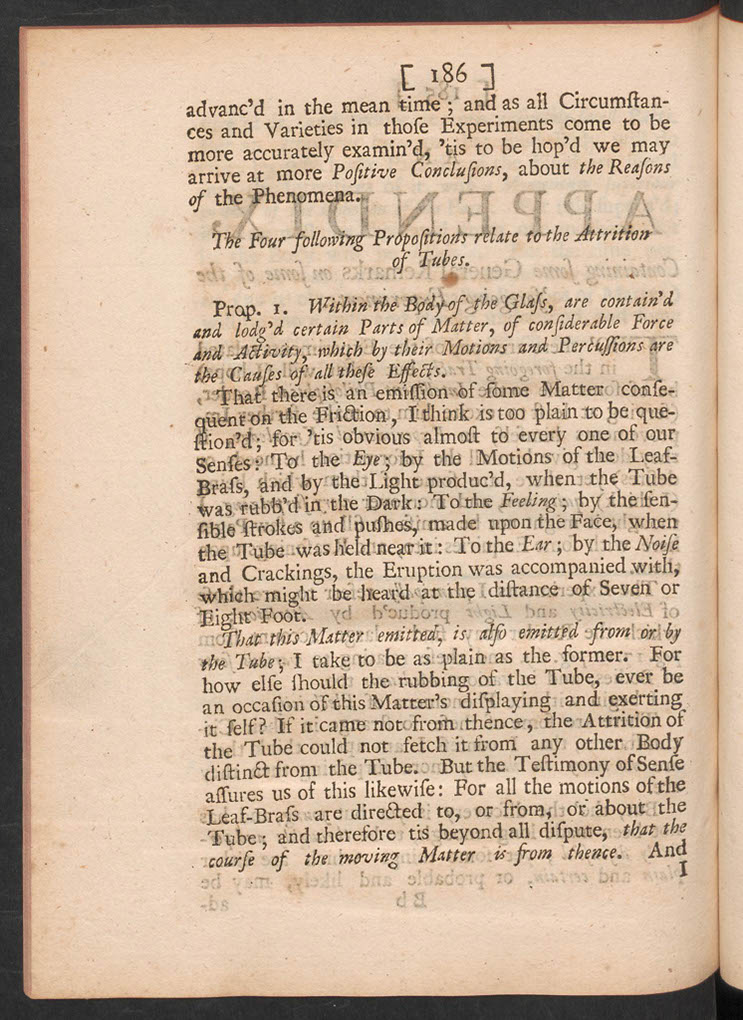 [ 186 ]
advanc'd in the mean time ; and as all Circumſtan-
ces and Varieties in thoſe Experiments come to be
more accurately examin'd, 'tis to be hop'd we may
arrive at more Poſitive Concluſions, about the Reaſons
of the Phenomena.
The Four following Propoſitions relate to the Attrition
of Tubes.
Prop. 1. Within the Body of the Glaſs, are contain'd
and lodg'd certain Parts of Matter, of conſiderable Force
and Activity, which by their Motions and Percuſſions are
the Cauſes of all theſe Effects.
That there is an emiſſion of ſome Matter conſe-
quent on the Friction, I think is too plain to be que-
ſtion'd ; for 'tis obvious almoſt to every one of our
Senſes : To the Eye ; by the Motions of the Leaf-
Braſs, and by the Light produc'd, when the Tube
was rubb'd in the Dark : To the Feeling ; by the ſen-
ſible ſtrokes and puſhes, made upon the Face, when
the Tube was held near it : To the Ear ; by the Noiſe
and Crackings, the Eruption was accompanied with,
which might be heard at the diſtance of Seven or
Eight Foot.
That this Matter emitted, is alſo emitted from or by
the Tube ; I take to be as plain as the former. For
how elſe ſhould the rubbing of the Tube, ever be
an occaſion of this Matter's diſplaying and exerting
it ſelf ? If it came not from thence, the Attrition of
the Tube could not fetch it from any other Body
diſtinct from the Tube. But the Teſtimony of Senſe
aſſures us of this likewiſe : For all the motions of the
Leaf-Braſs are directed to, or from, or about the
Tube ; and therefore tis beyond all diſpute, that the
courſe of the moving Matter is from thence. And
I